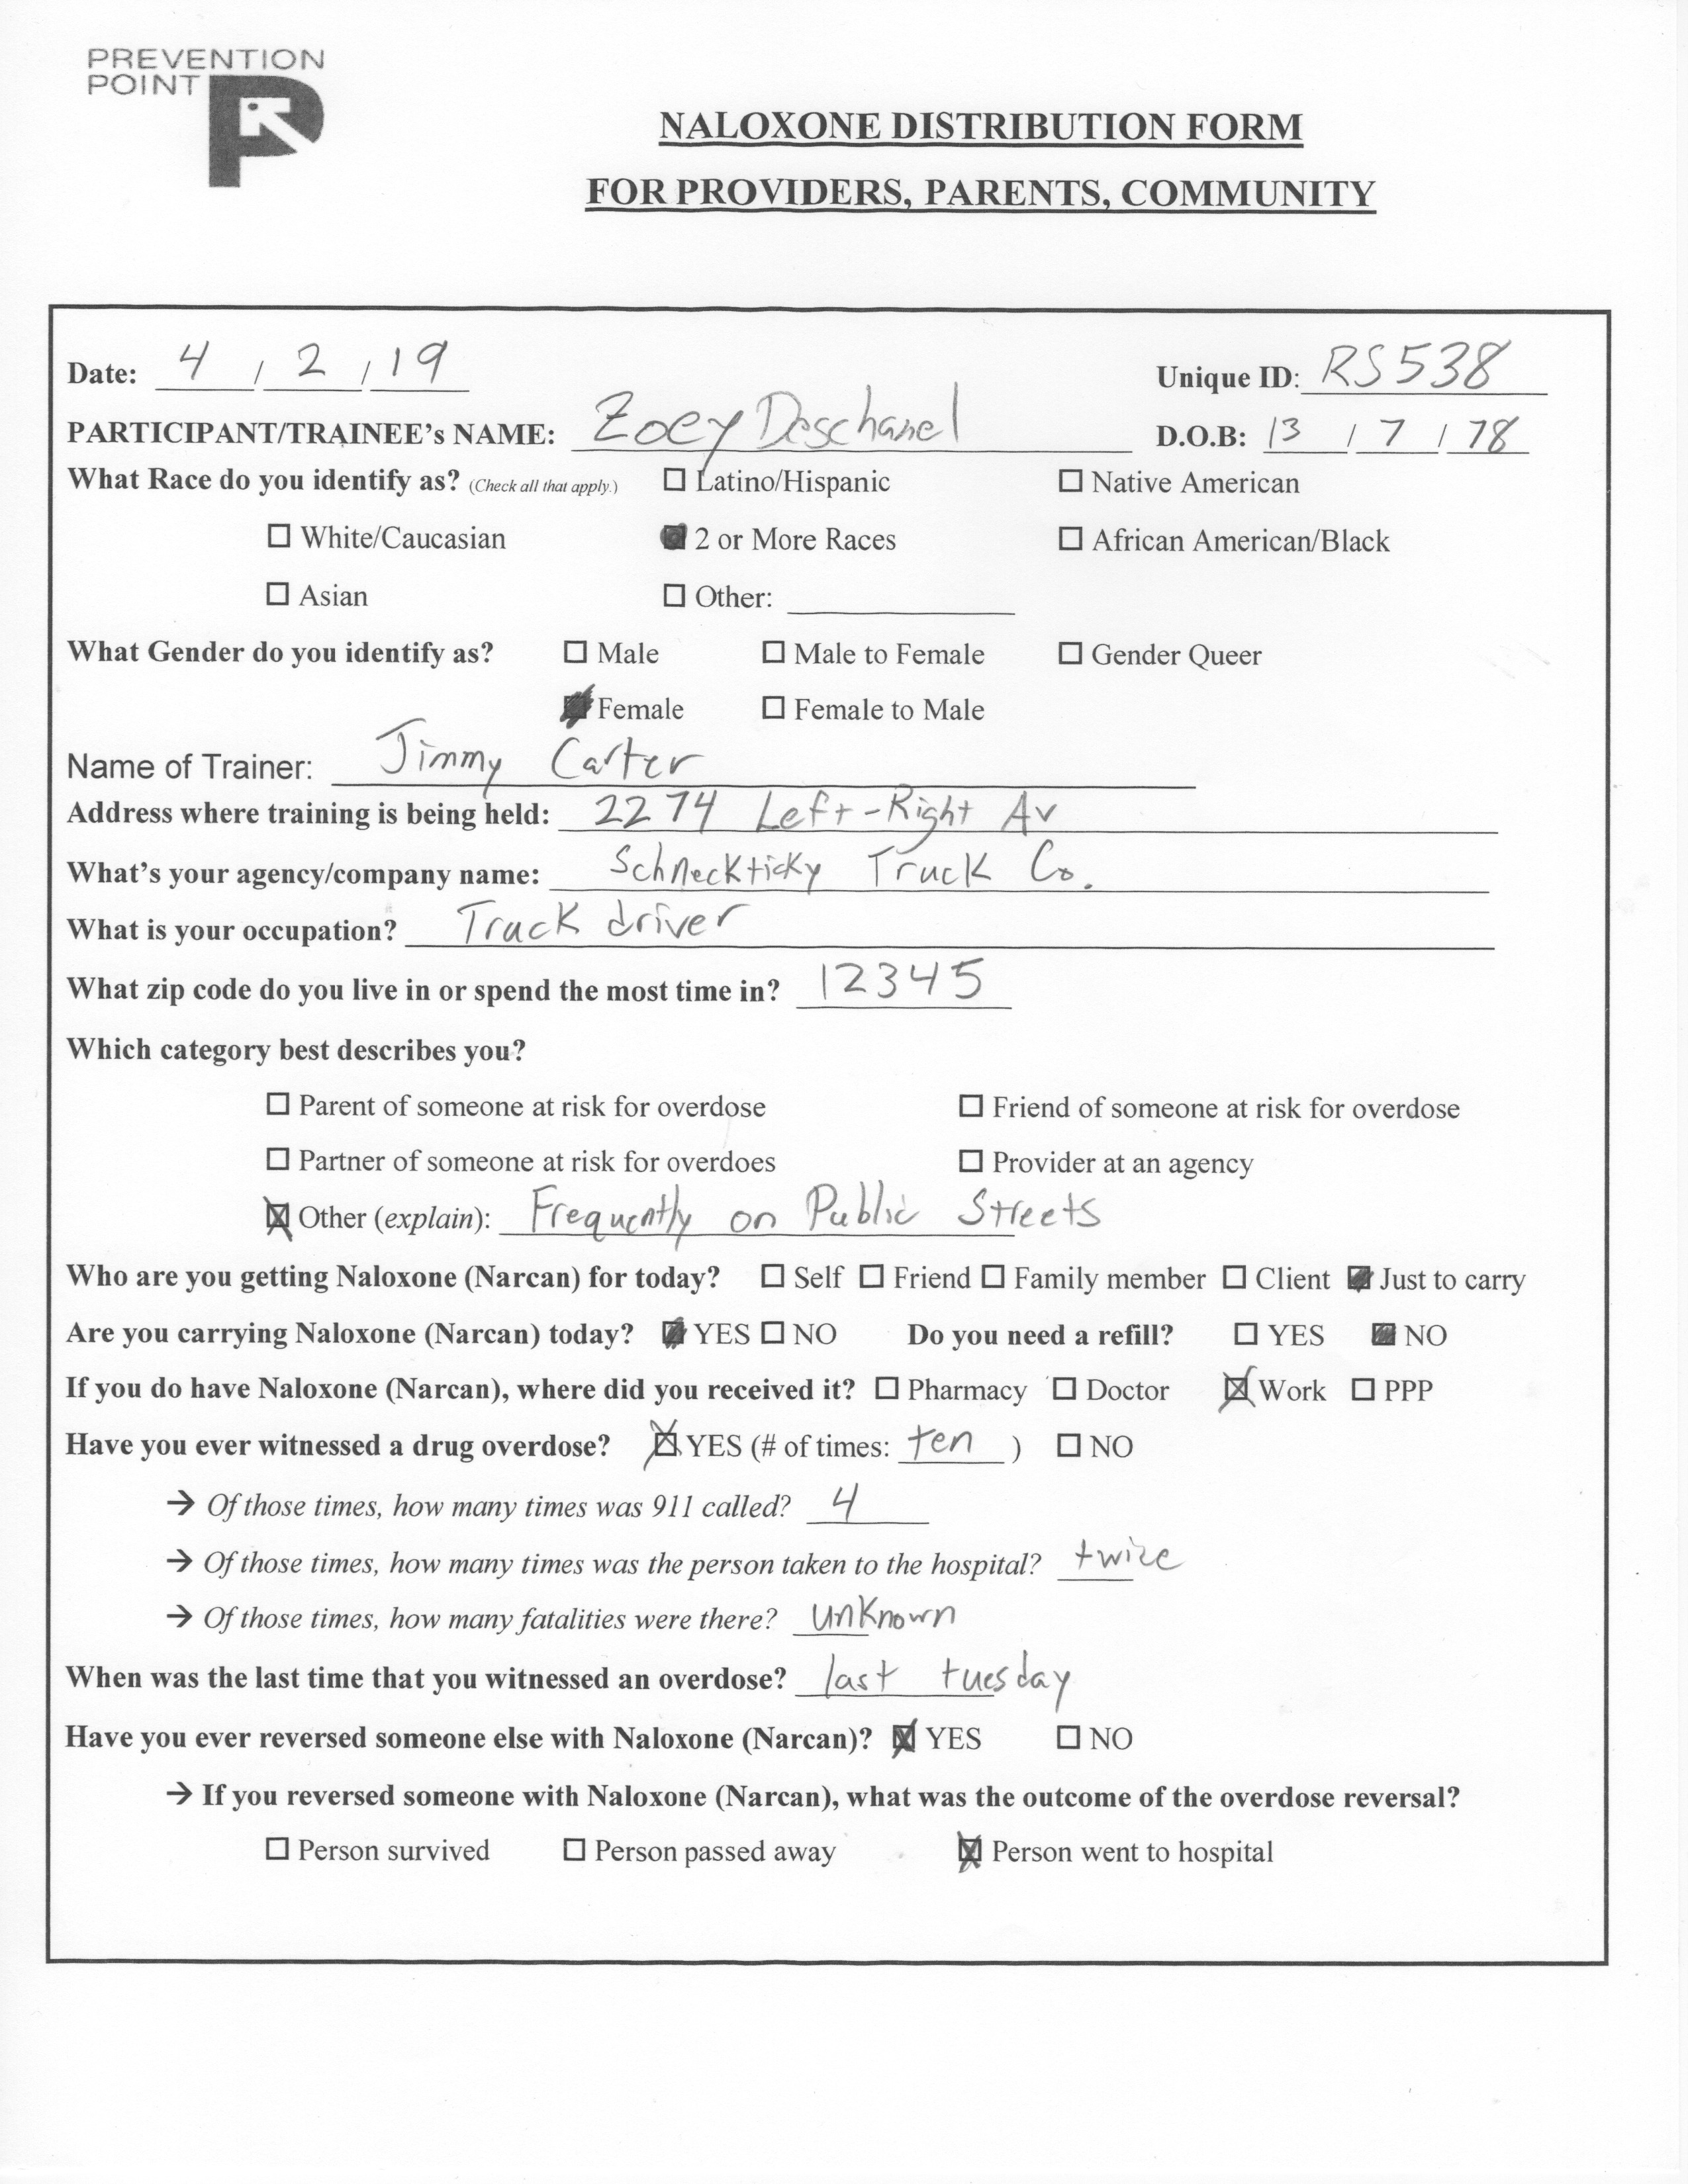 PREVENTION
POINT
NALOXONE DISTRIBUTION FORM
FOR PROVIDERS, PARENTS, COMMUNITY
Date: 4 / 2 / 19 Unique ID: RS538
PARTICIPANT/TRAINEE's NAME: Zoey Deschanel D.O.B: 13 / 7 / 78
What Race do you identify as? (Check all that apply.) ☐ Latino/Hispanic ☐ Native American
☐ White/Caucasian ☒ 2 or More Races ☐ African American/Black
☐ Asian ☐ Other:
What Gender do you identify as? ☐ Male ☐ Male to Female ☐ Gender Queer
☒ Female ☐ Female to Male
Name of Trainer: Jimmy Carter
Address where training is being held: 2274 Left-Right Av
What's your agency/company name: Schneckticky Truck Co.
What is your occupation? Truck driver
What zip code do you live in or spend the most time in? 12345
Which category best describes you?
☐ Parent of someone at risk for overdose ☐ Friend of someone at risk for overdose
☐ Partner of someone at risk for overdoes ☐ Provider at an agency
☒ Other (explain): Frequently on Public Streets
Who are you getting Naloxone (Narcan) for today? ☐ Self ☐ Friend ☐ Family member ☐ Client ☒ Just to carry
Are you carrying Naloxone (Narcan) today? ☒ YES ☐ NO Do you need a refill? ☐ YES ☒ NO
If you do have Naloxone (Narcan), where did you received it? ☐ Pharmacy ☐ Doctor ☒ Work ☐ PPP
Have you ever witnessed a drug overdose? ☒ YES (# of times: ten ) ☐ NO
→ Of those times, how many times was 911 called? 4
→ Of those times, how many times was the person taken to the hospital? twice
→ Of those times, how many fatalities were there? unknown
When was the last time that you witnessed an overdose? last tuesday
Have you ever reversed someone else with Naloxone (Narcan)? ☒ YES ☐ NO
→ If you reversed someone with Naloxone (Narcan), what was the outcome of the overdose reversal?
☐ Person survived ☐ Person passed away ☒ Person went to hospital